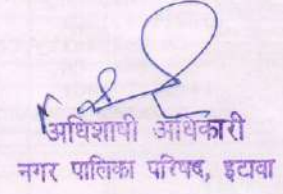 अधिशाषी अधिकारी
नगर पालिका परिषद, इटावा